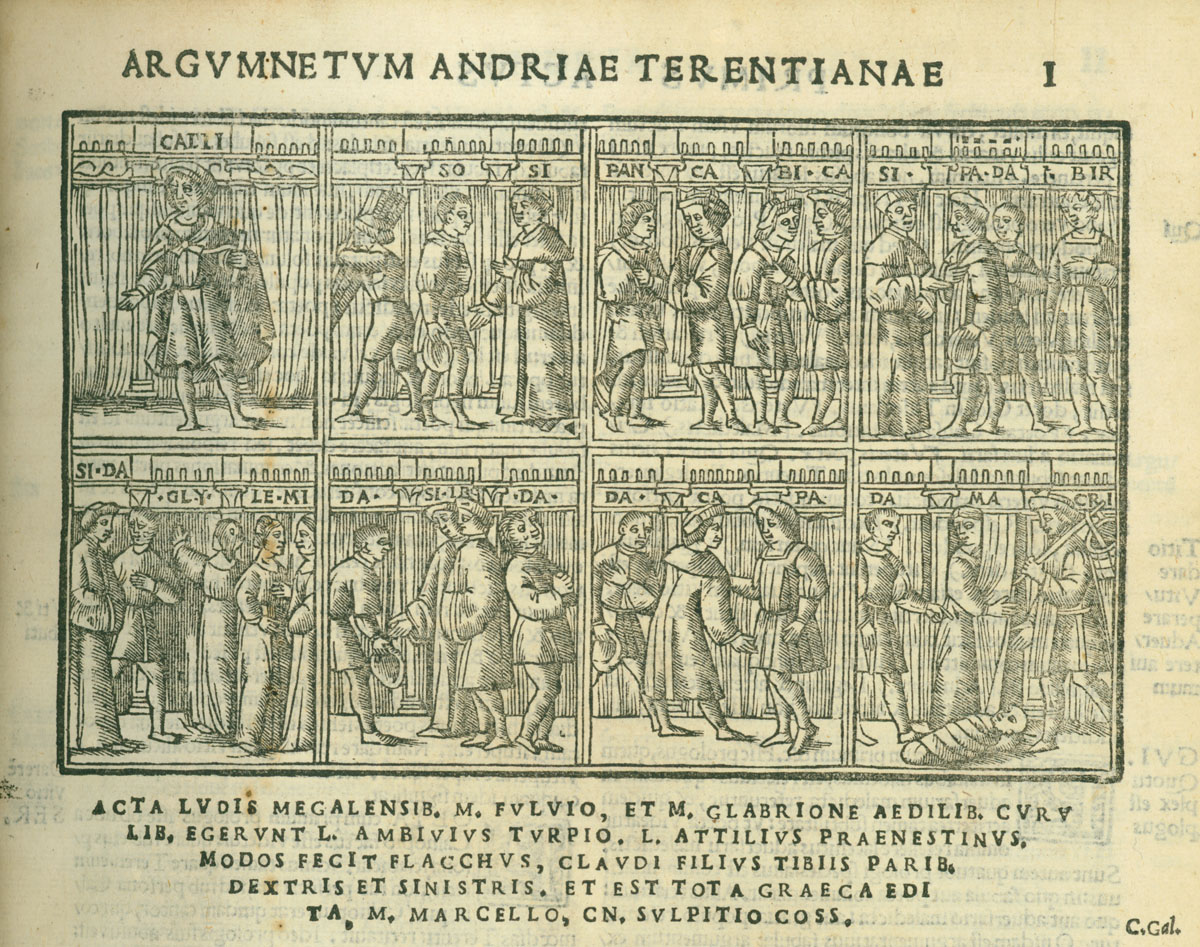 ARGVMNETVM ANDRIAE TERENTIANAE I
CALLI
SO SI
PAN CA BI·CA
SI· PA·DA BIR
SI·DA
·GLY· LE·MI
DA· SI·
·DA·
DA· CA PA
DA MA CRI
ACTA LVDIS MEGALENSIB. M. FVLVIO, ET M. GLABRIONE AEDILIB. CVRV
LIB. EGERVNT L. AMBIVIVS TVRPIO. L. ATTILIVS PRAENESTINVS.
MODOS FECIT FLACCHVS, CLAVDI FILIVS TIBIIS PARIB.
DEXTRIS ET SINISTRIS. ET EST TOTA GRAECA EDI
TA, M. MARCELLO, CN. SVLPITIO COSS.
C.Gal.